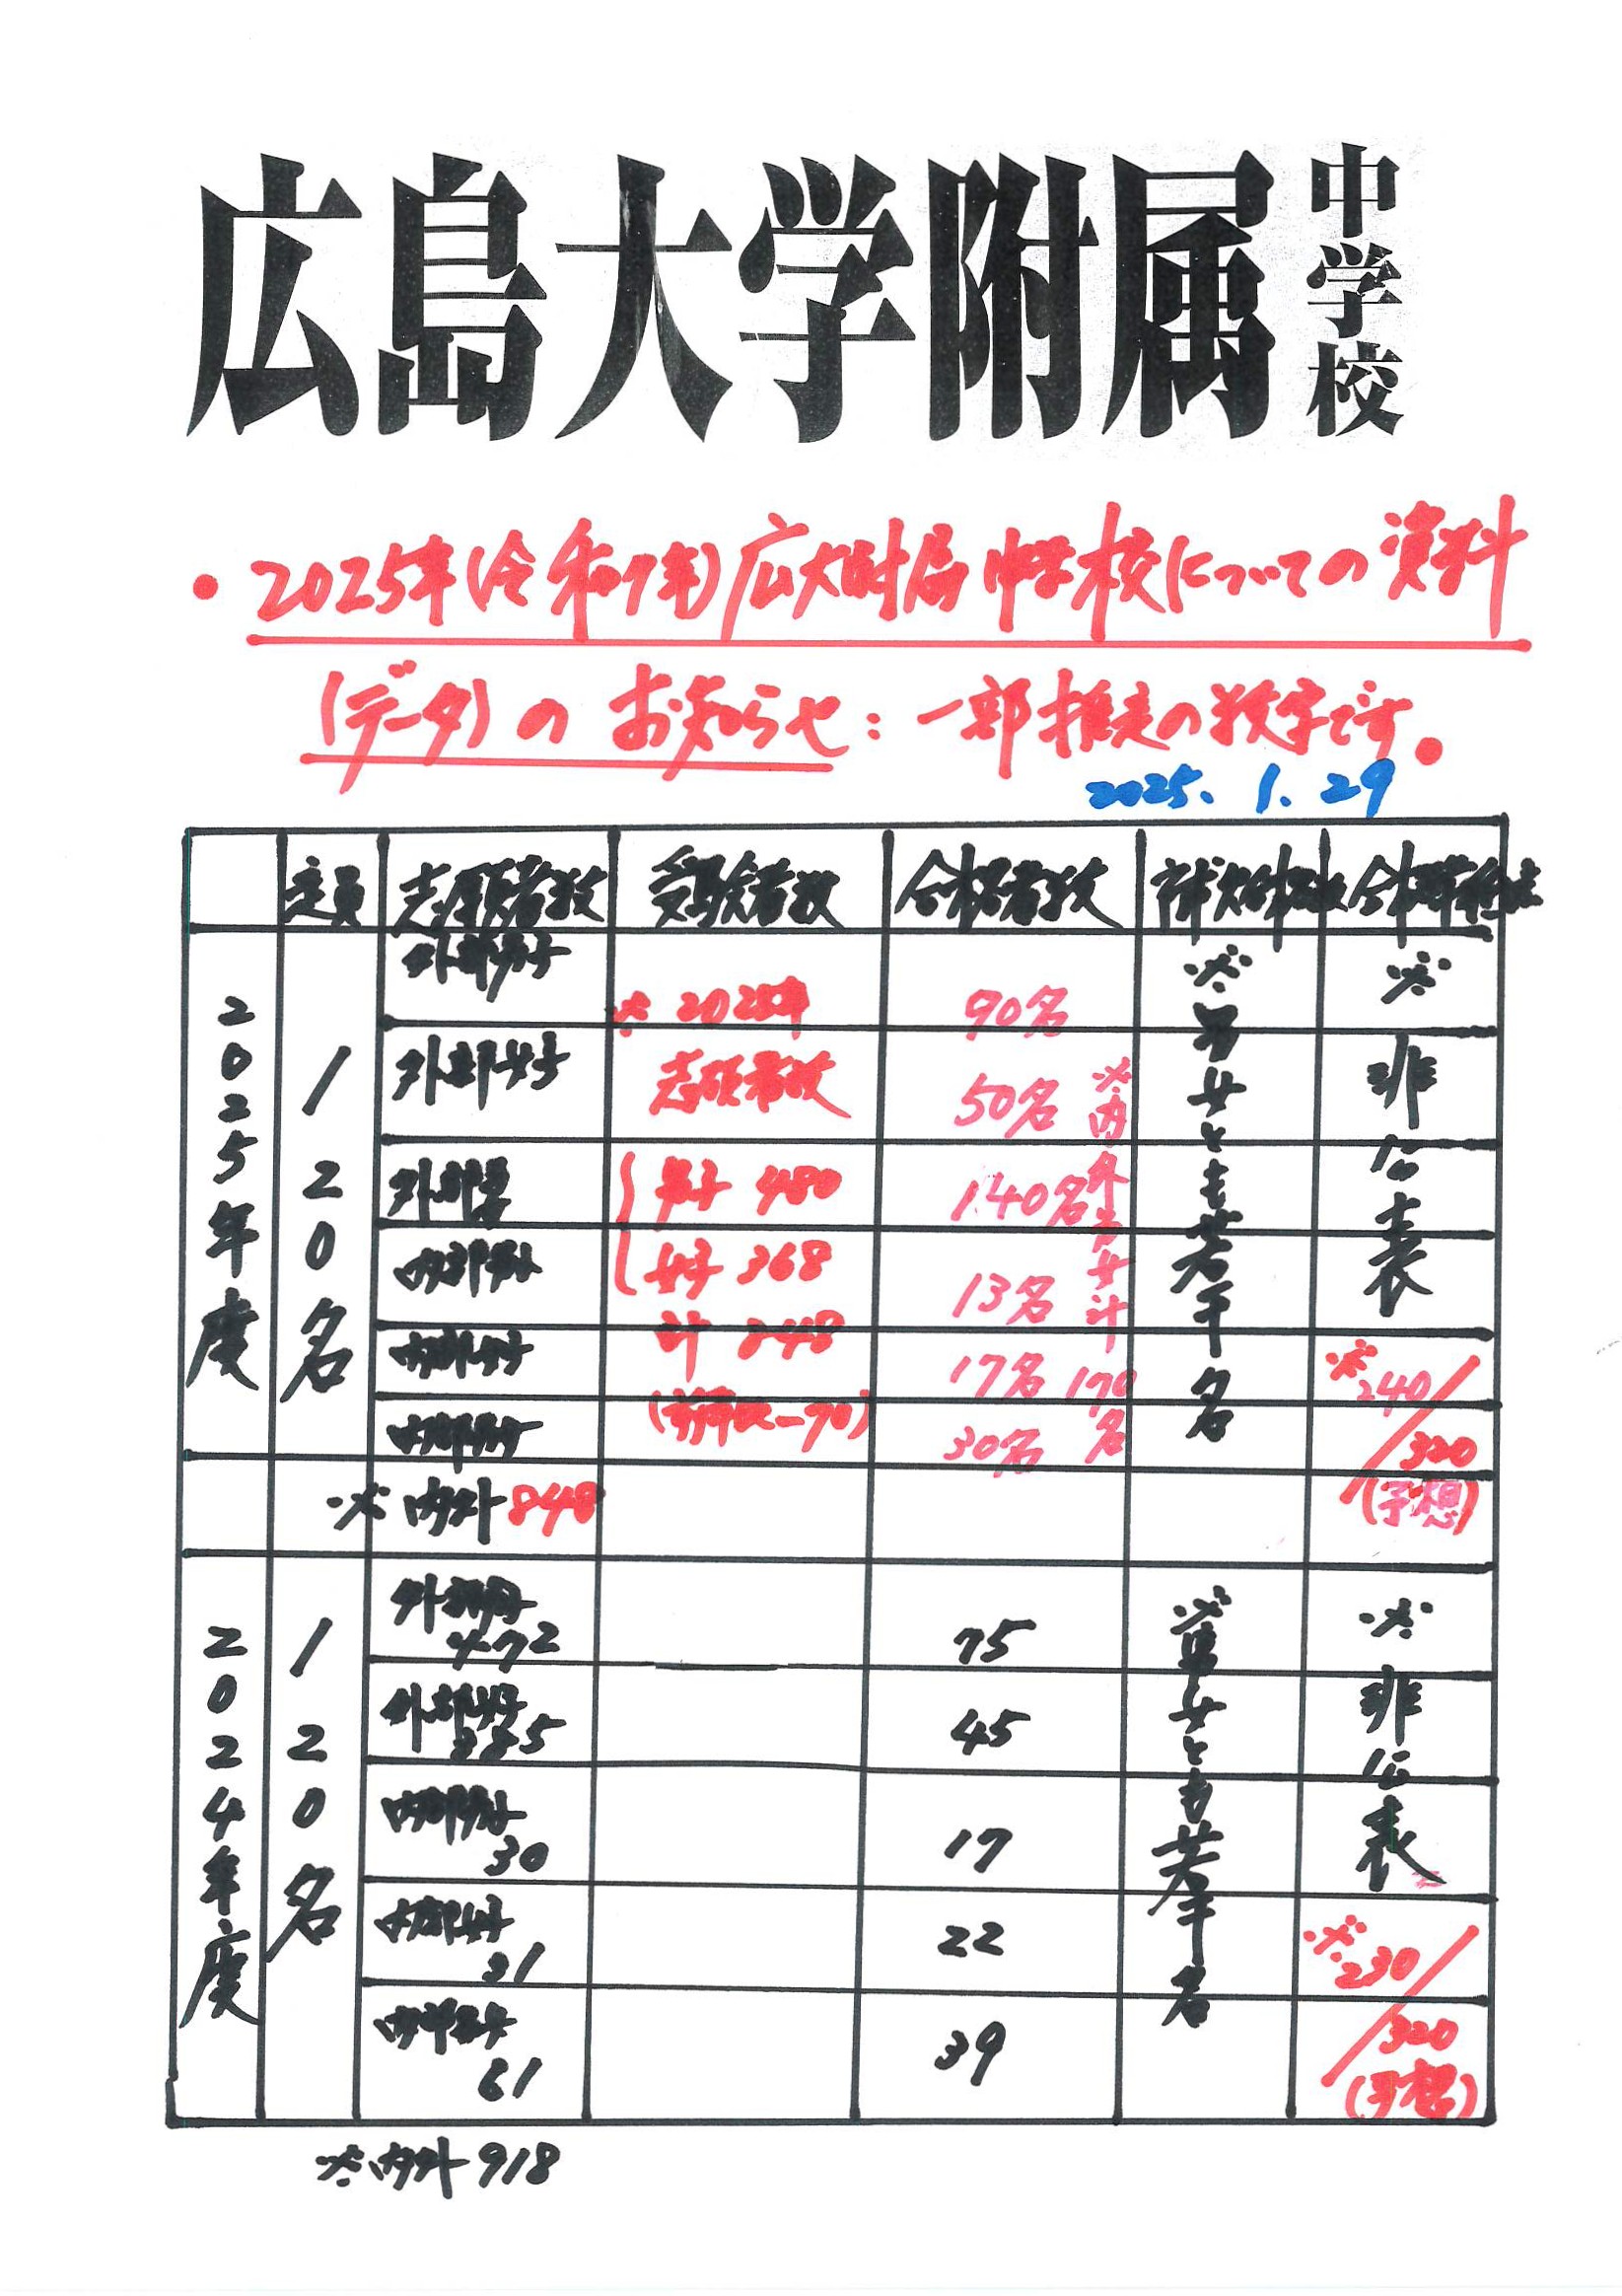 広島大学附属中学校
・2025年(令和7年)広大附属中学校についての資料
(データ)のお知らせ：一部推定の数字です。
2025.1.29
定員 志願者数 受験者数 合格者数 補欠合格者数 合格最低点
2025年度
120名
外部男子
外部女子
外部男女
内部男子
内部女子
内部男女
※2025年
志願者数
男子 480
女子 368
計 848
(前年比-70)
90名
50名
140名
13名
17名
30名
※内外男女計170名
※男女とも若干名
※非公表
※240/320
(予想)
※内外848
2024年度
120名
外部男子
472
外部女子
385
内部男子
30
内部女子
31
内部男女
61
75
45
17
22
39
※男女とも若干名
※非公表
※230/320
(予想)
※内外918